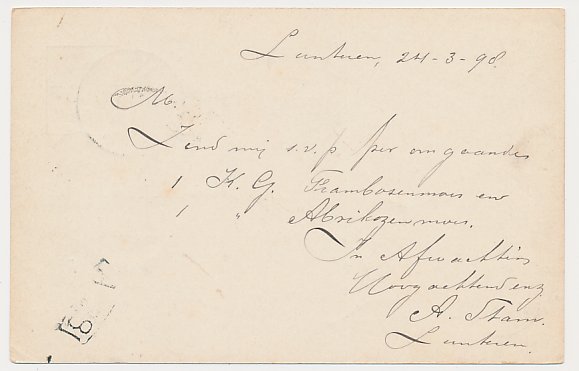 Lunteren, 24-3-98.
M.
Zend mij s.v.p per omgaande
1 K.G. Frambosenmoes en
1 " Abrikozenmoes.
In Afwachting
Hoogachtend enz
A. Stam.
Lunteren.